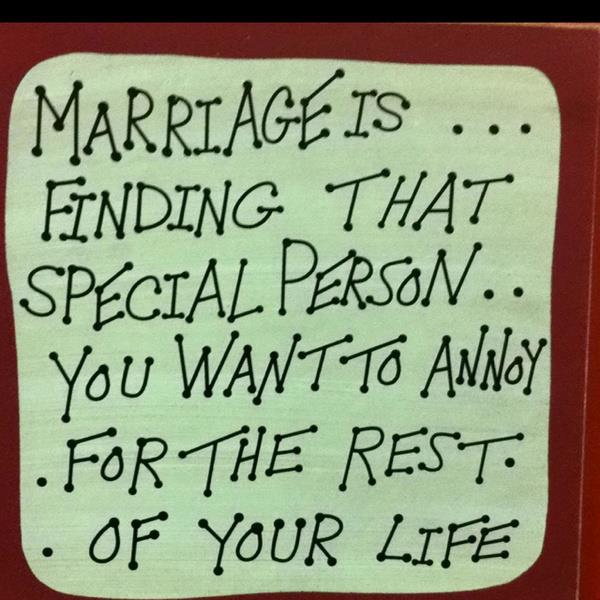 MARRIAGE IS ...
FINDING THAT
SPECIAL PERSON..
YOU WANT TO ANNOY
.FOR THE REST.
. OF YOUR LIFE